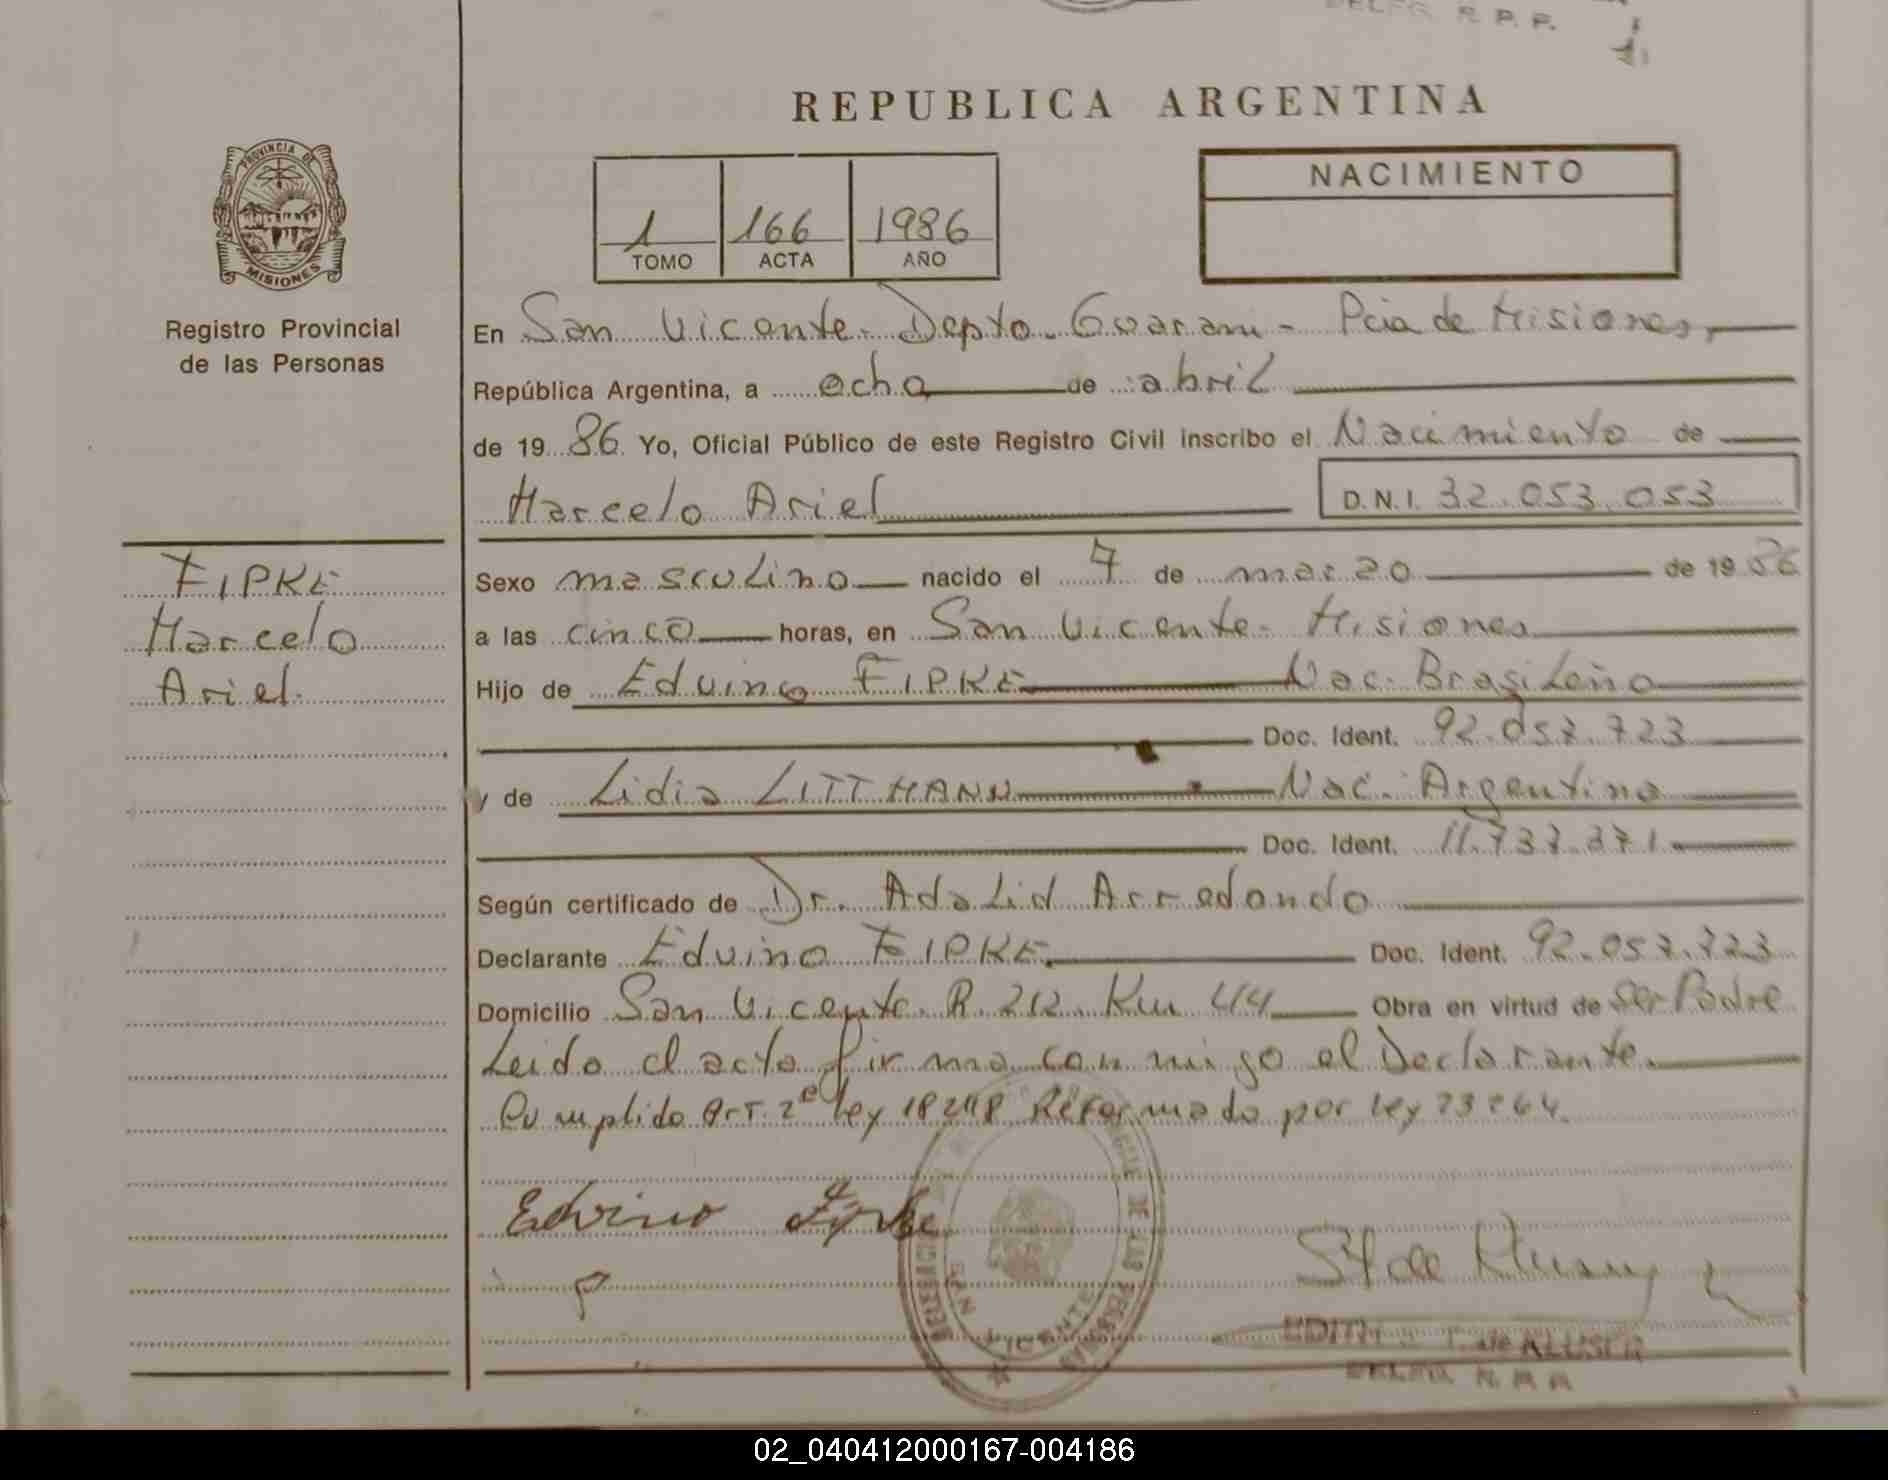 R. P. P.
REPUBLICA ARGENTINA
PROVINCIA DE
MISIONES
Registro Provincial
de las Personas
1 166 1986
TOMO ACTA AÑO
NACIMIENTO
En San Vicente - Depto. Guarani - Pcia de Misiones,
República Argentina, a ocho de abril
de 19 86 Yo, Oficial Público de este Registro Civil inscribo el Nacimiento de
Marcelo Ariel D.N.I. 32.053.053
FIPKE
Marcelo
Ariel.
Sexo masculino nacido el 7 de marzo de 19 86
a las cinco horas, en San Vicente - Misiones
Hijo de Eduino FIPKE Nac. Brasileño
Doc. Ident. 92.057.723
y de Lidia LITTMANN Nac. Argentina
Doc. Ident. 11.737.371
Según certificado de Dr. Adalid Arredondo
Declarante Eduino FIPKE. Doc. Ident. 92.057.723
Domicilio San Vicente. R. 212. Km 44 Obra en virtud de ser Padre
Leido el acta firma conmigo el Declarante.
Cumplido Art. 2º Ley 18248 Reformado por Ley 23264.
Edvino Fipke
SAN VICENTE
EDITH de KLUSER
DELEG. R. P. P.
02_040412000167-004186